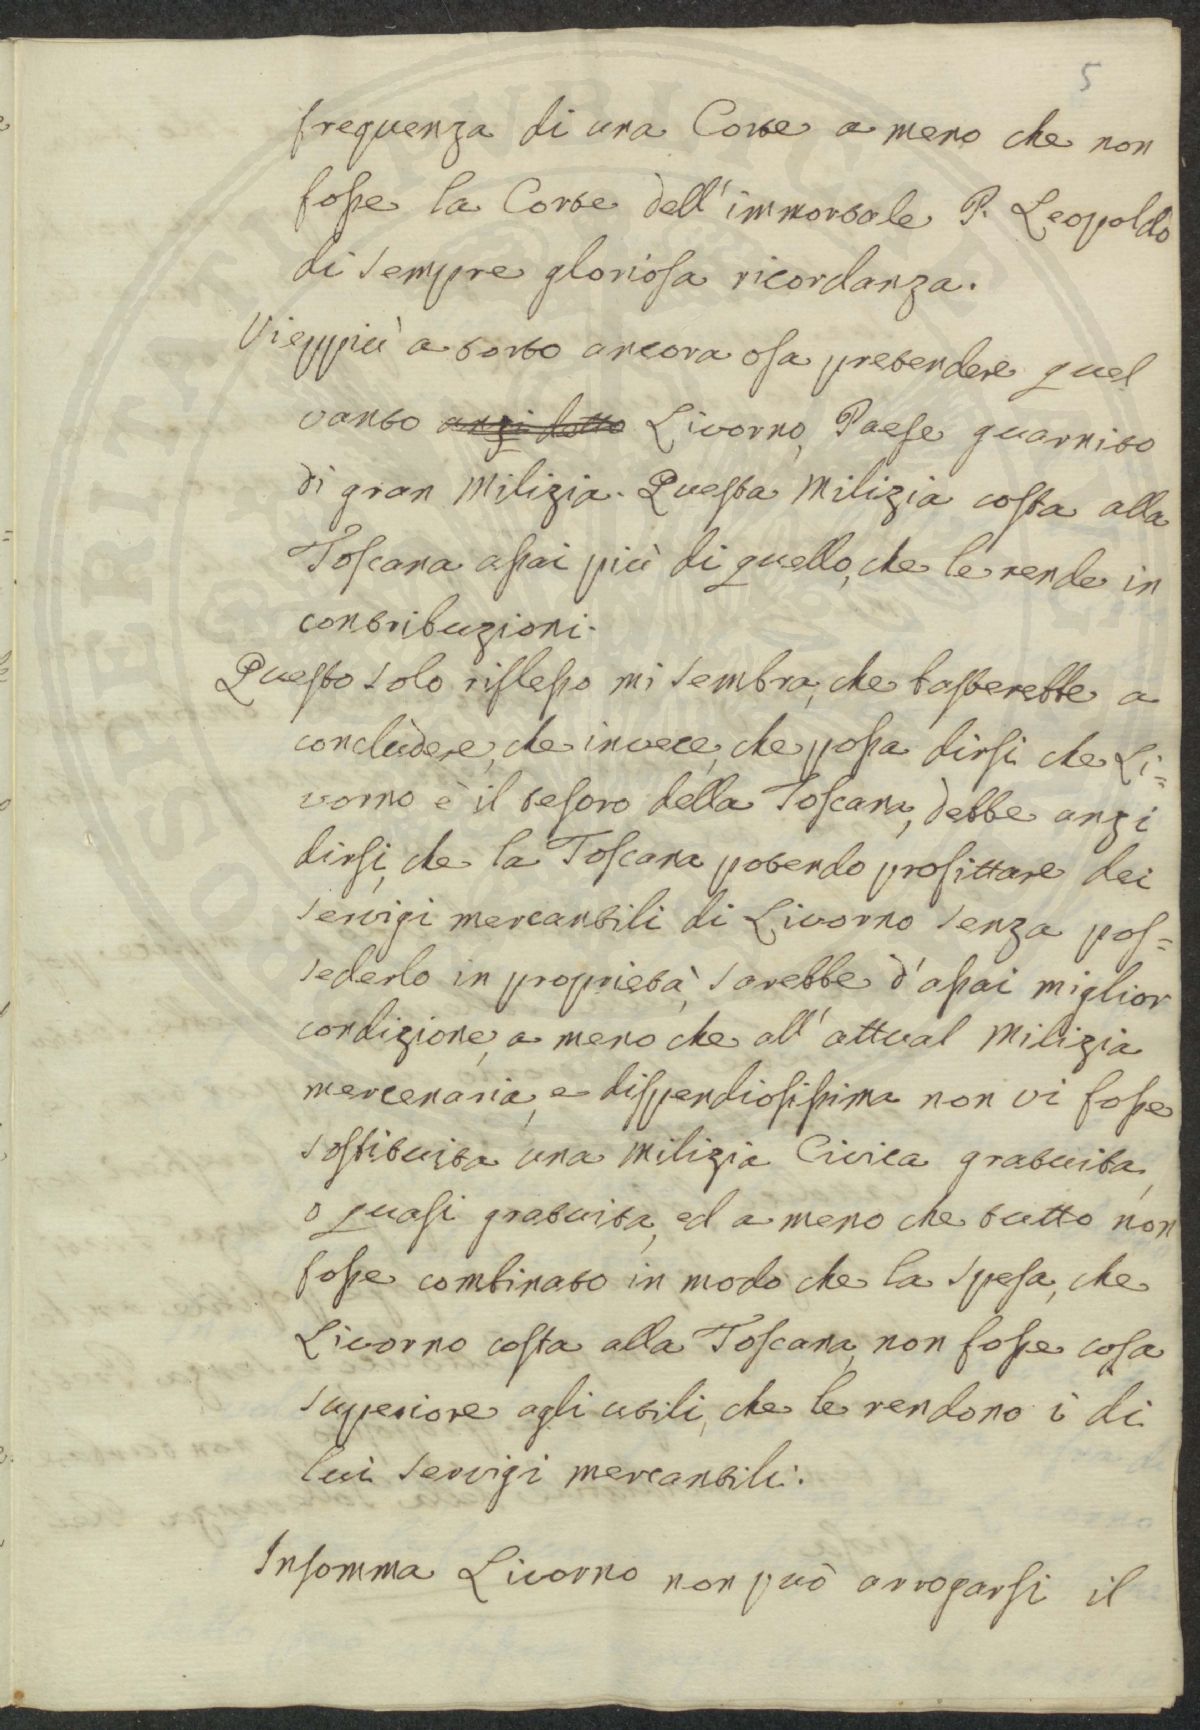 5
frequenza di una Corte a meno che non
fosse la Corte dell'immortale P. Leopoldo
di sempre gloriosa ricordanza.
Vieppiù a torto ancora osa pretendere quel
vanto anzi detto Livorno, Paese guarnito
di gran Milizia. Questa Milizia costa alla
Toscana assai più di quello, che le rende in
contribuzioni.
Questo solo riflesso mi sembra, che basterebbe a
concludere, che invece, che possa dirsi che Li=
vorno è il tesoro della Toscana, debbe anzi
dirsi, che la Toscana potendo profittare dei
servigi mercantili di Livorno senza pos=
sederlo in proprietà, sarebbe d'assai miglior
condizione, a meno che all'attual Milizia
mercenaria, e dispendiosissima non vi fosse
sostituita una Milizia Civica gratuita,
o quasi gratuita, ed a meno che tutto non
fosse combinato in modo che la spesa, che
Livorno costa alla Toscana, non fosse cosa
superiore agli utili, che le rendono i di
lui servigi mercantili.
Insomma Livorno non può arrogarsi il